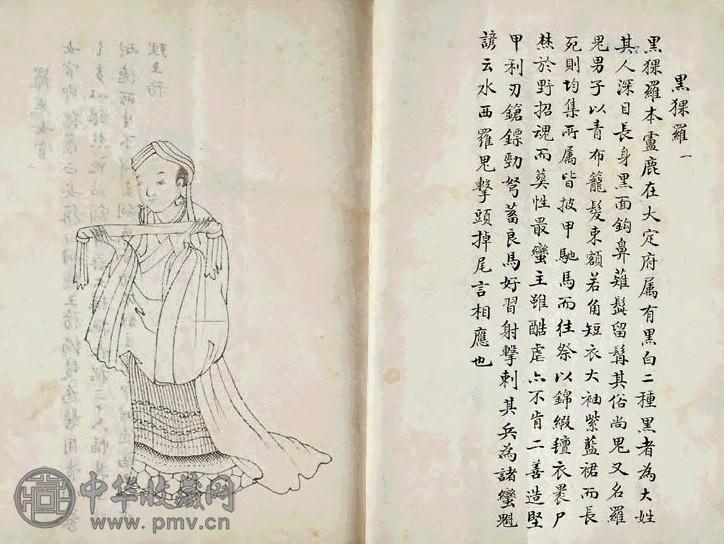 黑猓羅 一
黑猓羅本盧鹿在大定府属有黑白二種黑者為大姓
其人深目長身黑面鈎鼻薙髭留髯其俗尚鬼又名羅
鬼男子以青布籠髮束額若角短衣大袖紫藍裙而長
死則均集所属皆披甲馳馬而往祭以錦緞氊衣裹尸
焚於野招魂而葬性最蠻主雖酷虐亦不肯二善造堅
甲利刃鎗鏢勁弩蓄良馬好習射擊刺其兵為諸蠻魁
諺云水西羅鬼擊頭掉尾言相應也
中华收藏网
www.pmv.cn